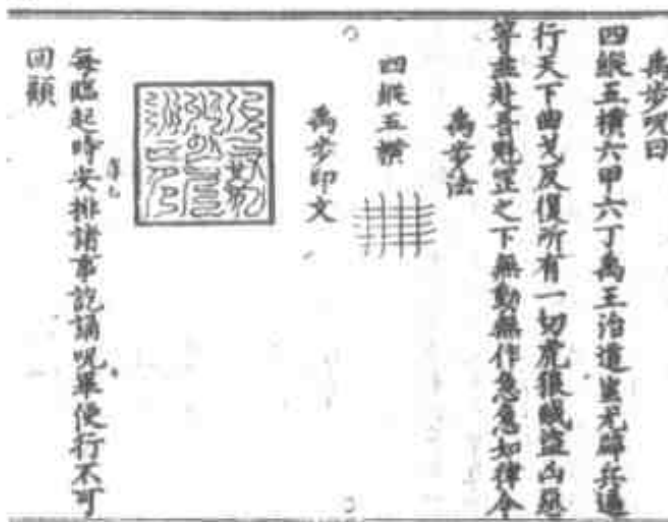 禹步咒曰
四縱五横六甲六丁禹王治道蚩尤辟兵遍
行天下曲戈反復所有一切虎狼賊盜凶惡
等並赴吾魁罡之下無動無作急急如律令
禹步法
四縱五横
禹步印文
每臨起時安排諸事訖誦咒畢便行不可
回顧